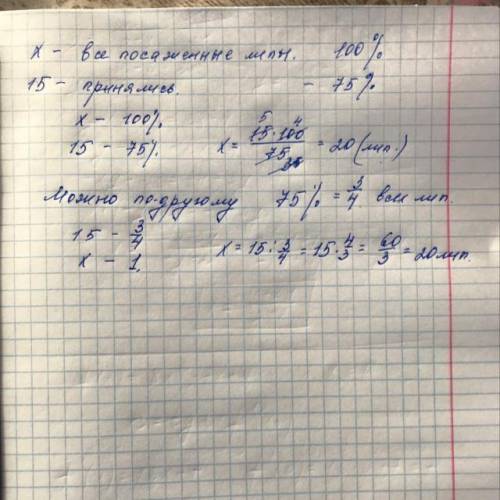 x - все посаженные липы. 100%
15 - принялись. - 75%
x - 100%
15 - 75% x = 15·100/75 = 20 (лип.)
Можно по-другому 75% = 3/4 всех лип.
15 - 3/4
x - 1. x = 15 : 3/4 = 15 · 4/3 = 60/3 = 20 лип.